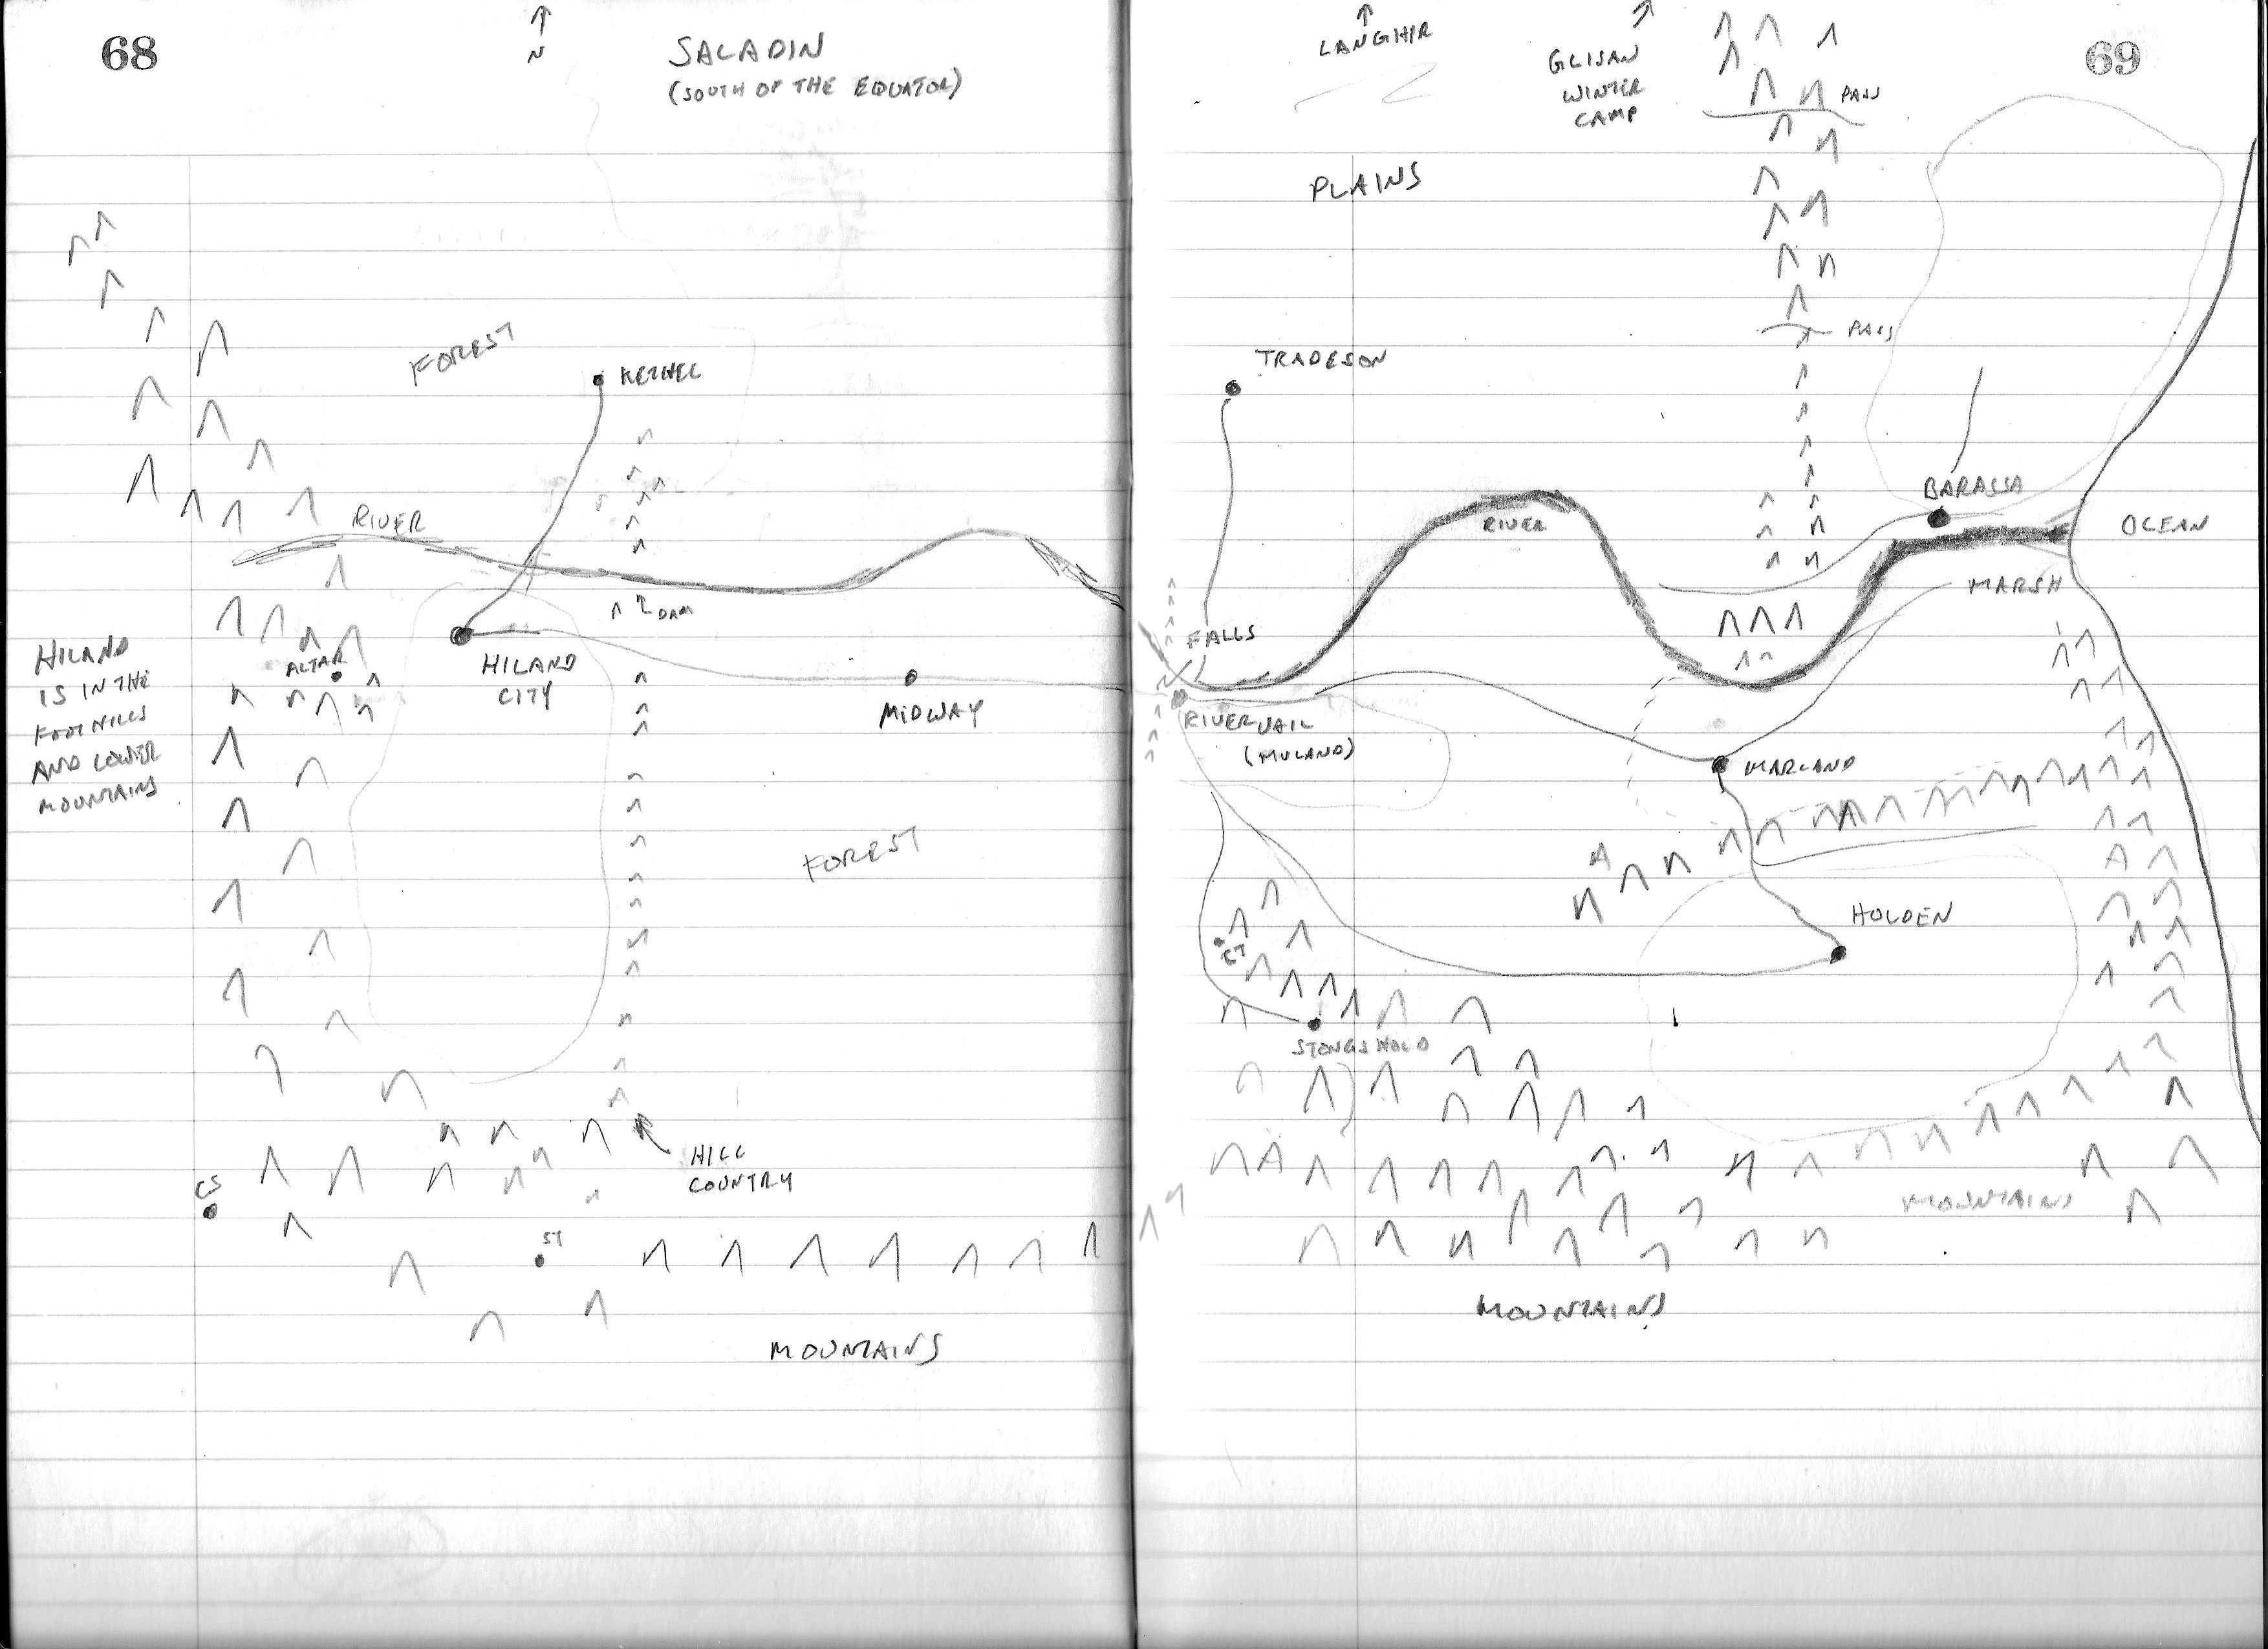 68
N
SALADIN
(SOUTH OF THE EQUATOR)
FOREST
RIVER
DAM
ALTAR
HILAND
CITY
MIDWAY
HILAND
IS IN THE
FOOTHILLS
AND LOWER
MOUNTAINS
FOREST
HILL
COUNTRY
CS
ST
MOUNTAINS
LANGHIR
GLISAN
WINTER
CAMP
PASS
69
PLAINS
PASS
TRADESON
BARASSA
RIVER
OCEAN
MARSH
FALLS
RIVERVAIL
(MULAND)
MARLAND
HOLDEN
CT
MOUNTAINS
MOUNTAINS